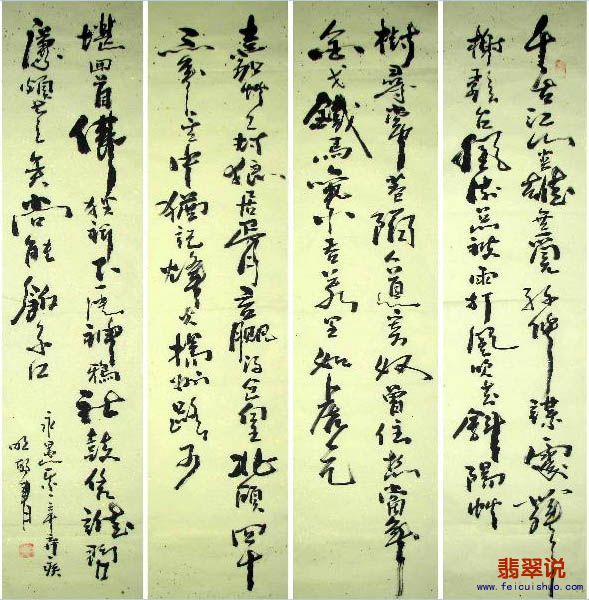 千古江山英雄無覓孫仲謀處舞
榭歌台風流總被雨打風吹去斜陽草
樹尋常巷陌人道寄奴曾住想當年
金戈鐵馬氣吞萬里如虎元
嘉草草封狼居胥意贏得倉皇北顧四十
三年望中猶記烽火揚州路可
堪回首佛狸祠下一片神鴉社鼓凭誰問
廉頗老矣尚能飯否
永遇樂辛弃疾
翡翠说
www.feicuishuo.com